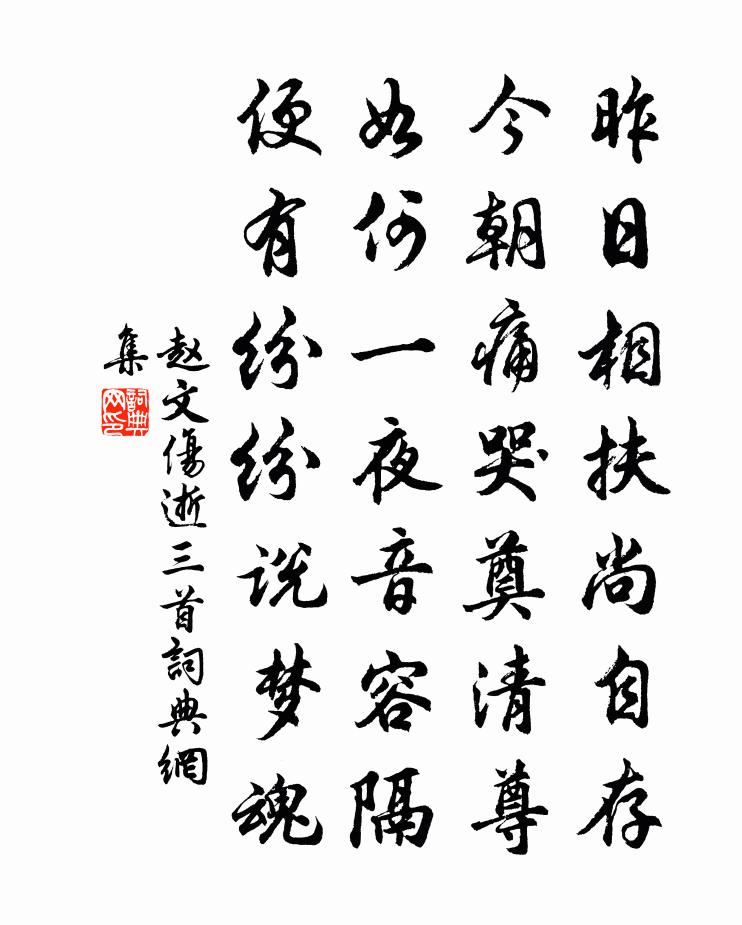 昨日相扶尚自存
今朝痛哭奠清尊
如何一夜音容隔
便有纷纷说梦魂
赵文傷逝三首詞典網
集
詞典
网印